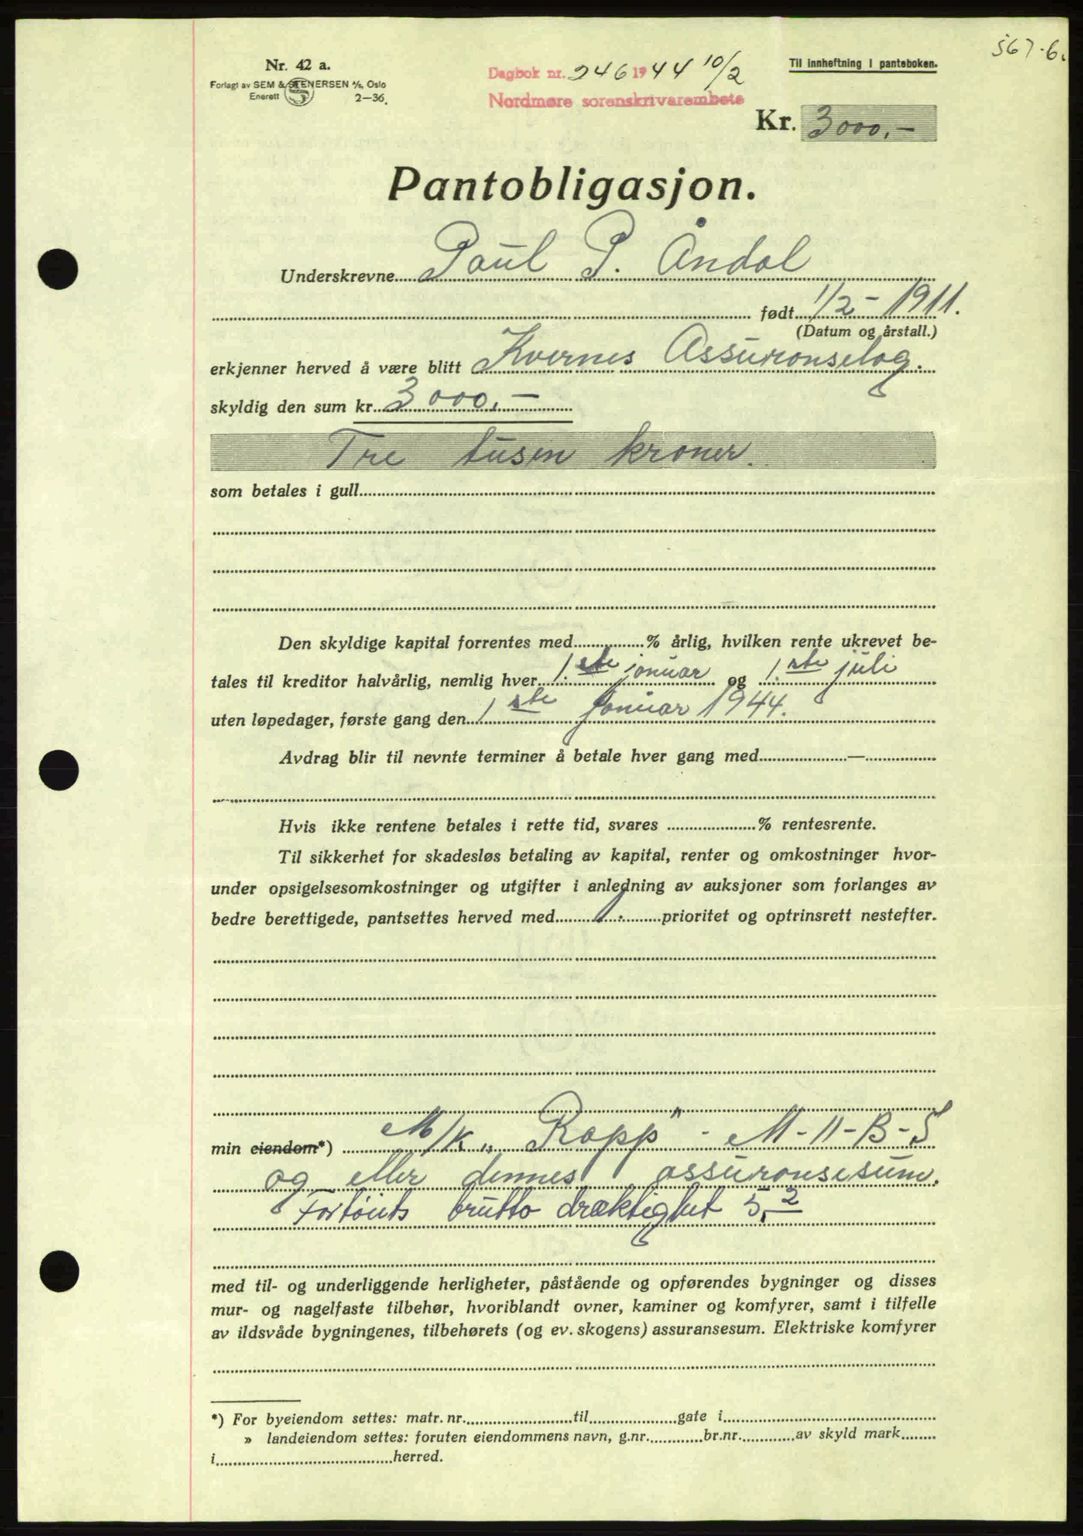 567-6.
Nr. 42 a.
Forlagt av SEM & STENERSEN A/S, Oslo
Enerett 2-36.
Dagbok nr. 246 1944 10/2
Nordmøre sorenskrivarembete
Til innheftning i panteboken.
Kr. 3000,-
Pantobligasjon.
Underskrevne Paul P. Åndal
født 1/2 - 1911.
(Datum og årstall.)
erkjenner herved å være blitt Kvernes Assuranselag.
skyldig den sum kr. 3000,-
Tre tusen kroner.
som betales i gull
Den skyldige kapital forrentes med % årlig, hvilken rente ukrevet be-
tales til kreditor halvårlig, nemlig hver 1. ste januar og 1. ste juli
uten løpedager, første gang den 1 ste januar 1944.
Avdrag blir til nevnte terminer å betale hver gang med —
Hvis ikke rentene betales i rette tid, svares % rentesrente.
Til sikkerhet for skadesløs betaling av kapital, renter og omkostninger hvor-
under opsigelsesomkostninger og utgifter i anledning av auksjoner som forlanges av
bedre berettigede, pantsettes herved med 1. prioritet og optrinsrett nestefter.
min eiendom*) M/K „Rapp" - M-11-B-S
og eller dennes assuransesum.
Fartøiets brutto dræktighet 5,2
med til- og underliggende herligheter, påstående og opførendes bygninger og disses
mur- og nagelfaste tilbehør, hvoriblandt ovner, kaminer og komfyrer, samt i tilfelle
av ildsvåde bygningenes, tilbehørets (og ev. skogens) assuransesum. Elektriske komfyrer
*) For byeiendom settes: matr. nr. til gate i
» landeiendom settes: foruten eiendommens navn, g.nr. br.nr. av skyld mark
i herred.